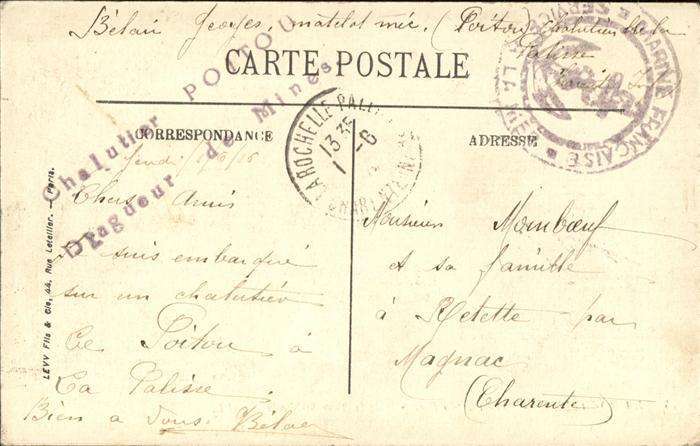 Bélair Georges, matelot méc. (Poitou) chalutier de la
Palisse
CARTE POSTALE
MARINE FRANÇAISE
SERVICE À LA MER
Chalutier POITOU
Dragueur de Mines
LA ROCHELLE-PALLICE
13 35
1 -6
CORRESPONDANCE
ADRESSE
Jeudi 1/6/16
Chers Amis
Je suis embarqué
sur un chalutier
Le Poitou à
La Palisse.
Bien a vous. Bélair
Monsieur Mombœuf
et sa famille
à Retette par
Magnac
(Charente)
LEVY Fils & Cie, 44, Rue Letellier. — Paris.